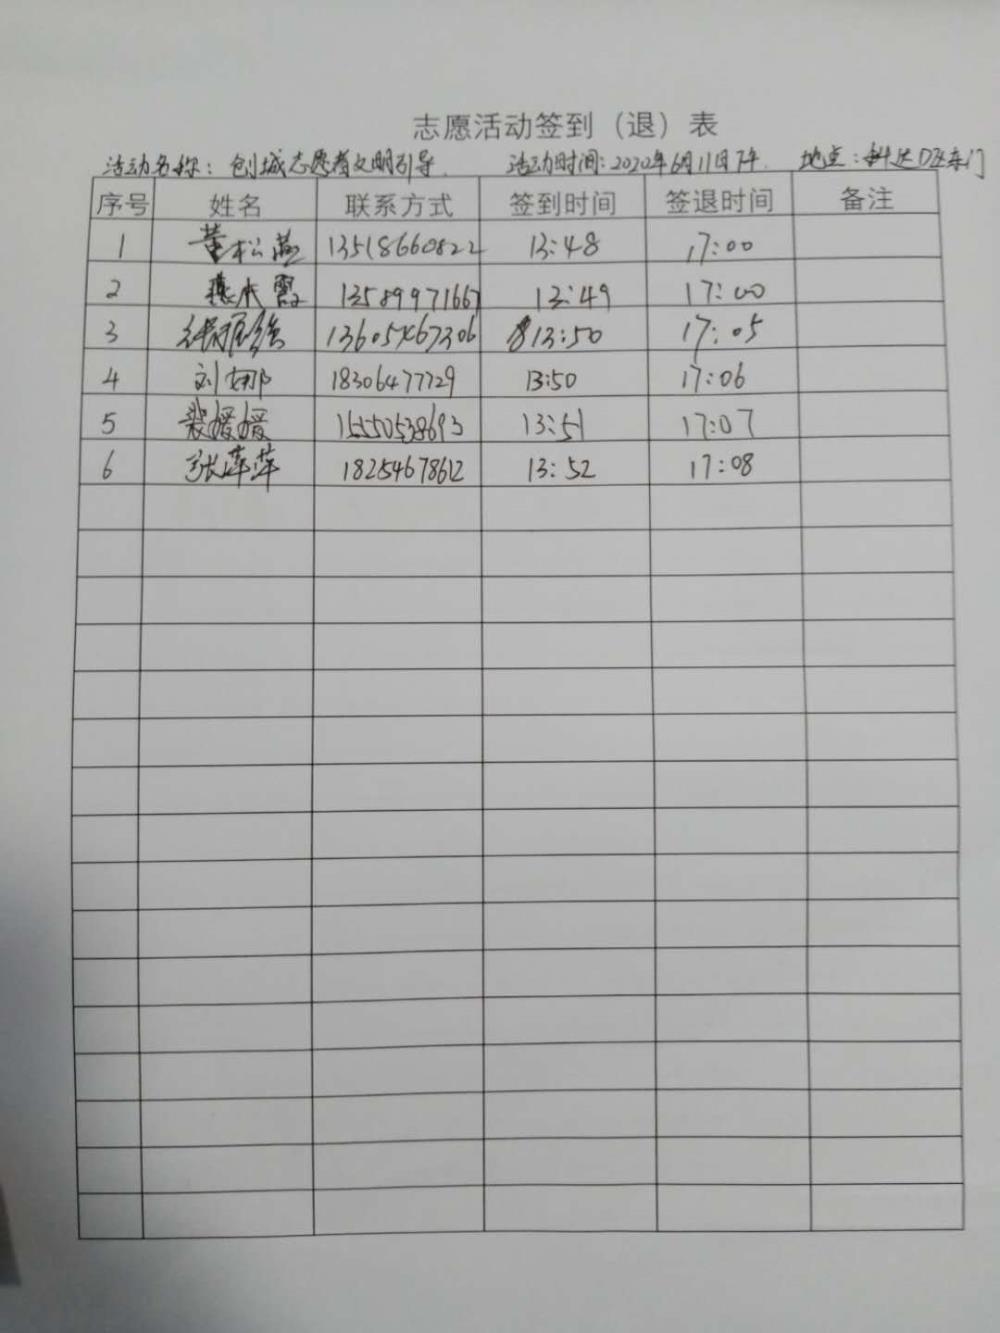 志愿活动签到（退）表
活动名称：创城志愿者文明引导 活动时间：2020年6月11日下午 地点：科达D区东门
序号 姓名 联系方式 签到时间 签退时间 备注
1 董松燕 13518660822 13:48 17:00
2 13589971667 13:49 17:00
3 13:50 17:05
4 刘娜 18306477729 13:50 17:06
5 裴媛媛 15550538693 13:51 17:07
6 张萍萍 18254678612 13:52 17:08